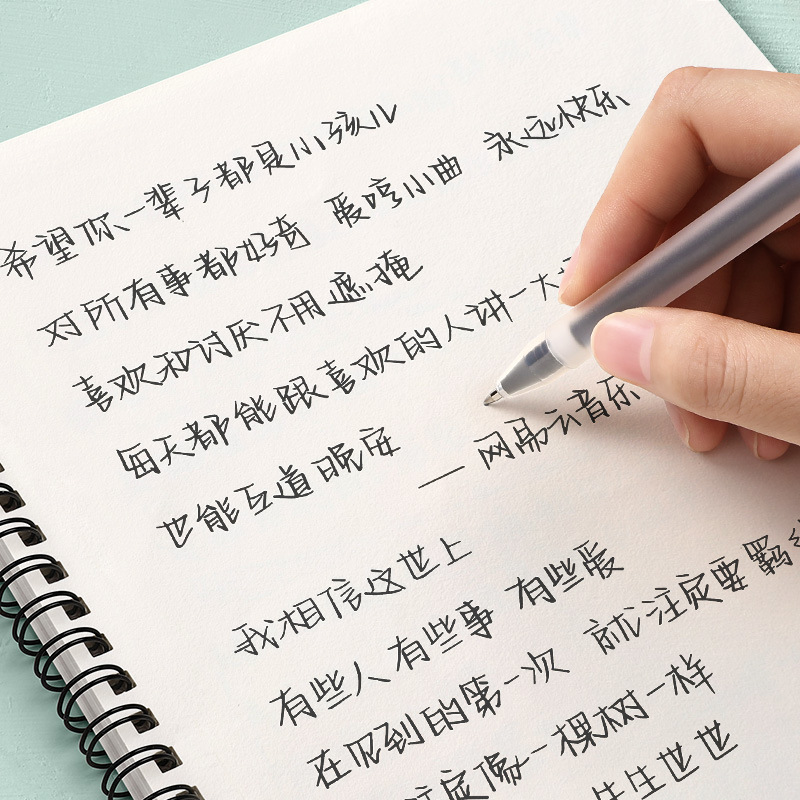 希望你一辈子都是小孩儿
对所有事都好奇 爱哼小曲 永远快乐
喜欢和讨厌不用遮掩
每天都能跟喜欢的人讲一大
也能互道晚安 — 网易云音乐
我相信这世上
有些人有些事 有些爱
在见到的第一次 就注定要羁
注定像一棵树一样
生生世世